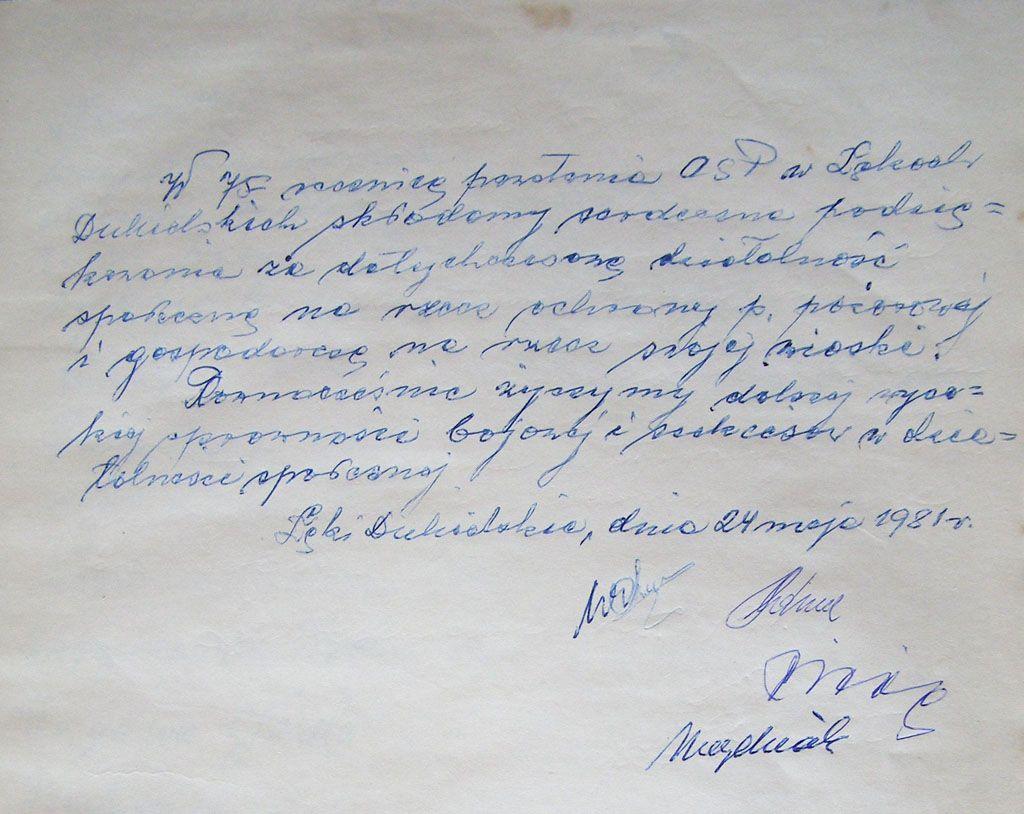 W 75 rocznicę powstania OSP w Łękach
Dukielskich składamy serdeczne podzię=
kowania za dotychczasową działalność
społeczną na rzecz ochrony p. pożarowej
i gospodarczą na rzecz swojej wioski.
Równocześnie życzymy dalszej wyso=
kiej sprawności bojowej i sukcesów w dzia=
łalności społecznej.
Łęki Dukielskie, dnia 24 maja 1981 r.